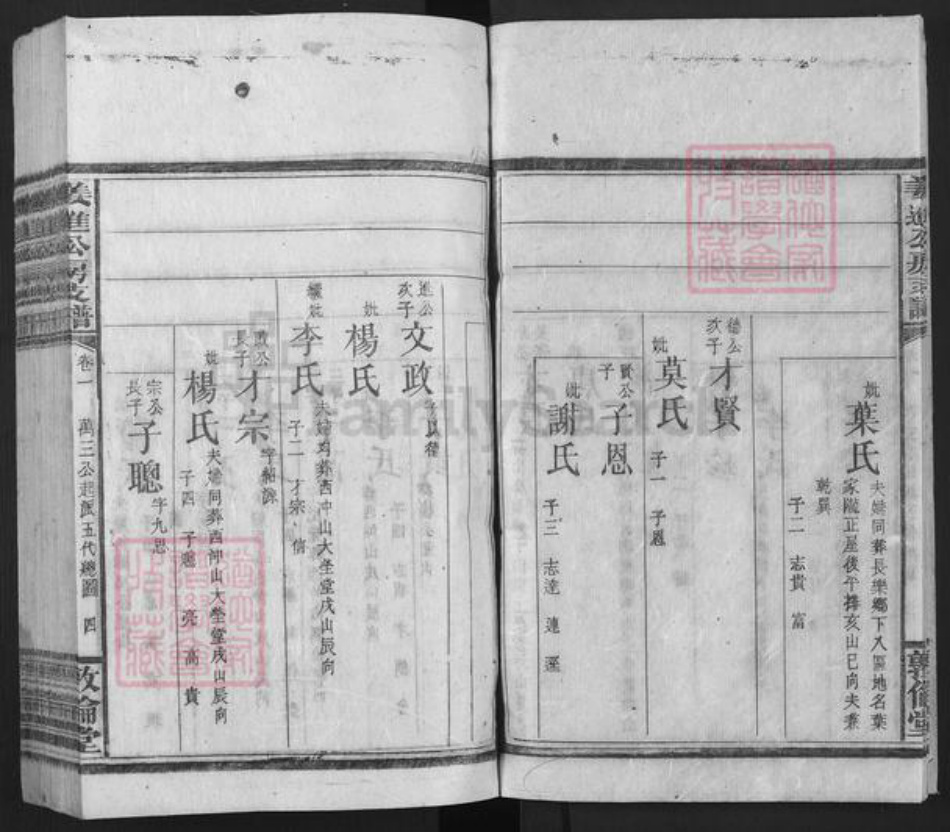 妣
葉氏
夫婦同葬長樂鄉下入區地名葉
家隴正屋後午拜亥山巳向夫兼
乾巽
子二 志貴 富
德公
次子
才賢
妣
莫氏
子一 子恩
賢公
子
子恩
妣
謝氏
子三 志達 連 選
進公
次子
文政
妣
楊氏
繼妣
李氏
夫婦均葬西冲山大塋堂戌山辰向
子二 才宗 信
政公
長子
才宗
妣
楊氏
夫婦同葬西冲山大塋堂戌山辰向
子四 子聰 亮 高 貴
宗公
長子
子聰
字九思
義進公房支譜
卷一
萬三公起派五代總圖
四
敦倫堂
FamilySearch